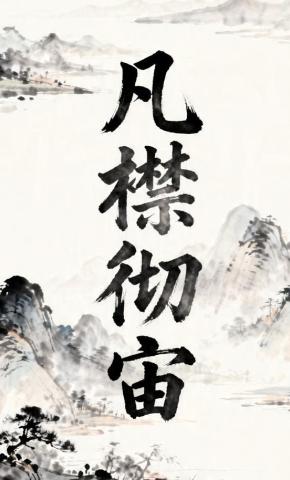 凡襟彻宙